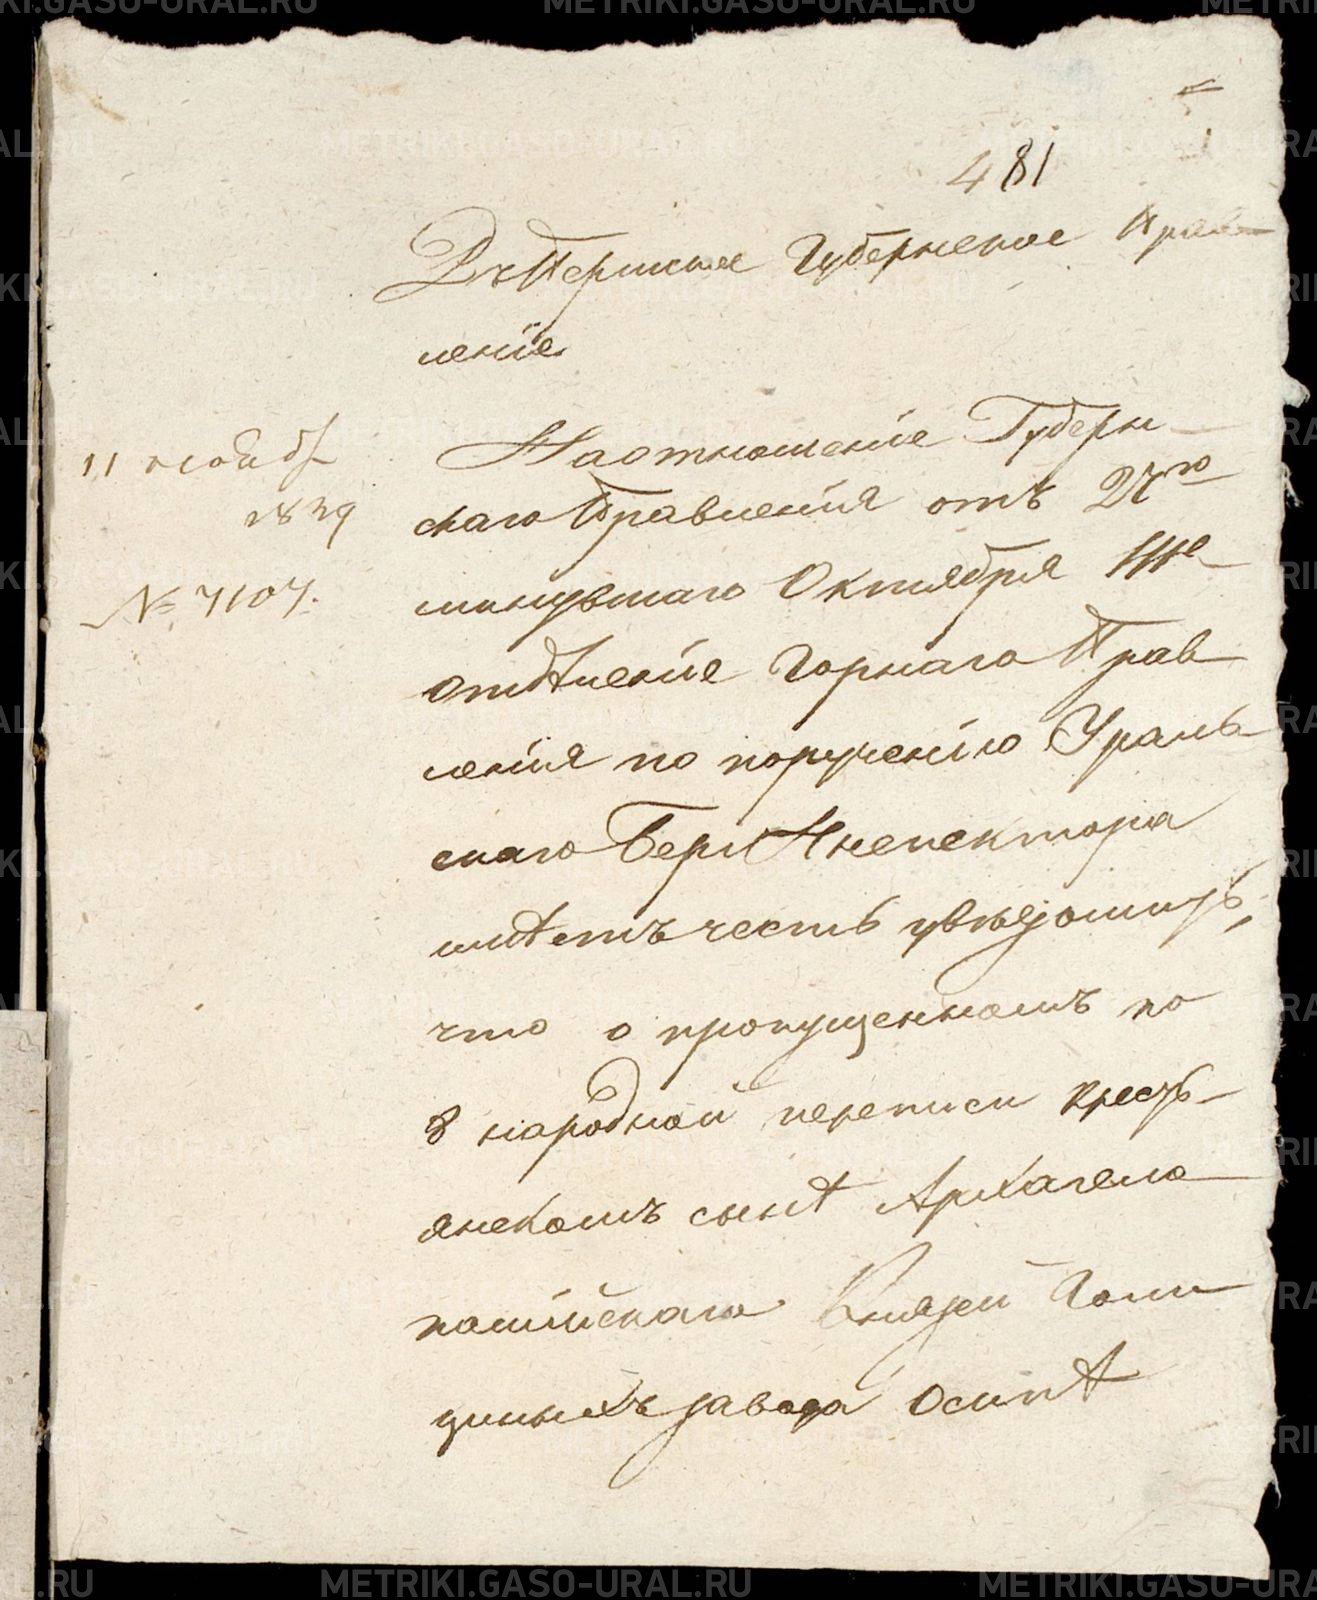 481
Въ Пермское Губернское Прав-
ленiе
11 ноября
1839
№ 7107.
На отношенiе Губерн-
скаго Правленiя отъ 27го
минувшаго Октября IIIе
отдѣленiе Горнаго Прав-
ленiя по порученiю Ураль-
скаго Бергъ Инспектора
имѣетъ честь увѣдомить,
что о пропущенномъ по
8 народной переписи кресть-
янскомъ сынѣ Архангело
пашiйскаго Князей Голи-
цыныхъ завода Осипѣ
METRIKI.GASO-URAL.RU